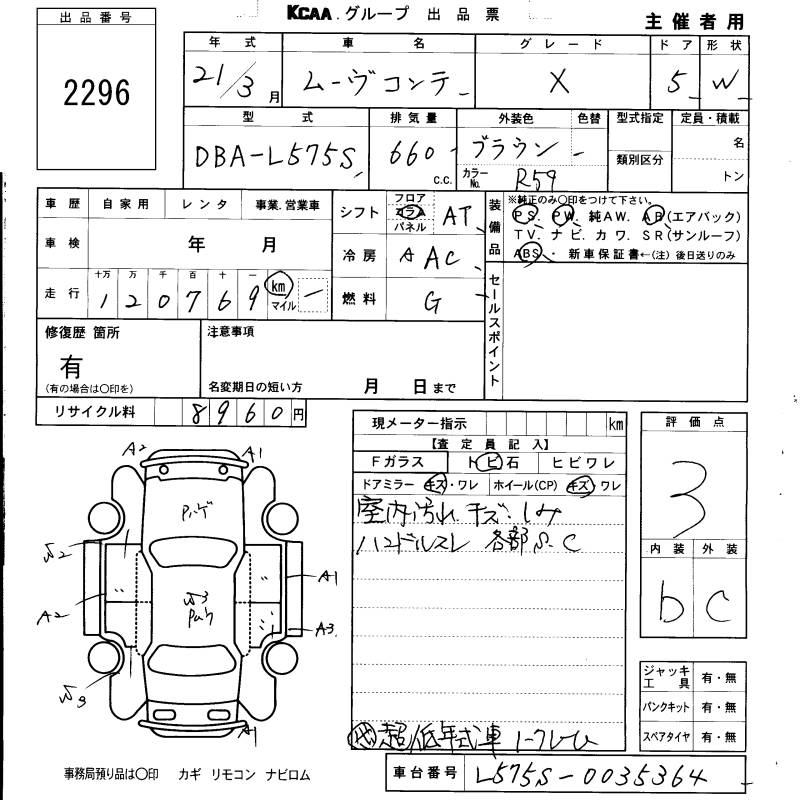 KCAA.グループ 出品票
主催者用
出品番号
2296
年式 車名 グレード ドア 形状
21/3月 ムーヴコンテ X 5 W
型式 排気量 外装色 色替 型式指定 定員・積載
DBA-L575S 660 c.c. ブラウン 名
カラーNo. R59 類別区分 トン
車歴 自家用 レンタ 事業.営業車
車検 年 月
走行 十万 万 千 百 十 一
120769 km マイル
シフト フロア コラム パネル AT
冷房 A AC
燃料 G
装備品 ※純正のみ〇印をつけて下さい。
PS. PW. 純AW. AB(エアバック)
TV. ナビ. カワ. SR(サンルーフ)
ABS・新車保証書←(注)後日送りのみ
セールスポイント
修復歴 箇所
有
(有の場合は〇印を)
注意事項
名変期日の短い方 月 日まで
リサイクル料 8960円
現メーター指示 km
【査定員記入】
Fガラス トビ石 ヒビワレ
ドアミラー キズ・ワレ ホイール(CP) キズ ワレ
室内汚れ キズ.シミ
ハンドルスレ 各部 S.C
超低年式車
評価点
3
内装 外装
b C
ジャッキ工具 有・無
パンクキット 有・無
スペアタイヤ 有・無
A2 A1
A1
A2
A3
A1
事務局預り品は〇印 カギ リモコン ナビロム
車台番号 L575S-0035364